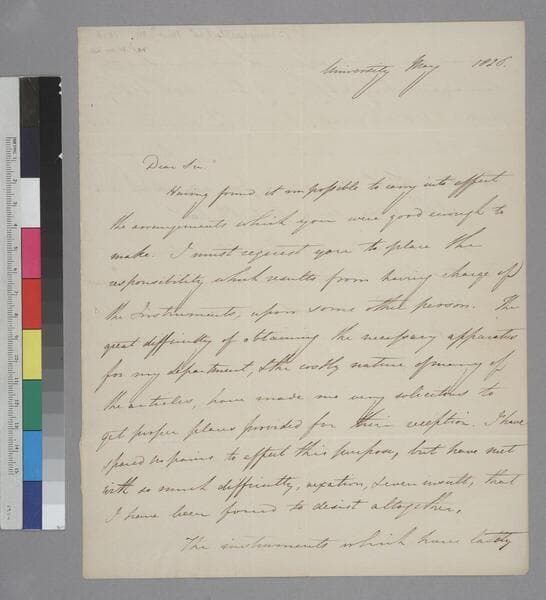 University May 1826.
Dear Sir
Having found it impossible to carry into effect
the arrangements which you were good enough to
make. I must request you to place the
responsibility which results from having charge of
the Instruments, upon some other person. The
great difficulty of obtaining the necessary apparatus
for my department, & the costly nature of many of
the articles, have made me very solicitous to
get proper places provided for their reception. I have
spared no pains to effect this purpose, but have met
with so much difficulty, vexation, & even insult, that
I have been forced to desist altogether.
The instruments which have lately